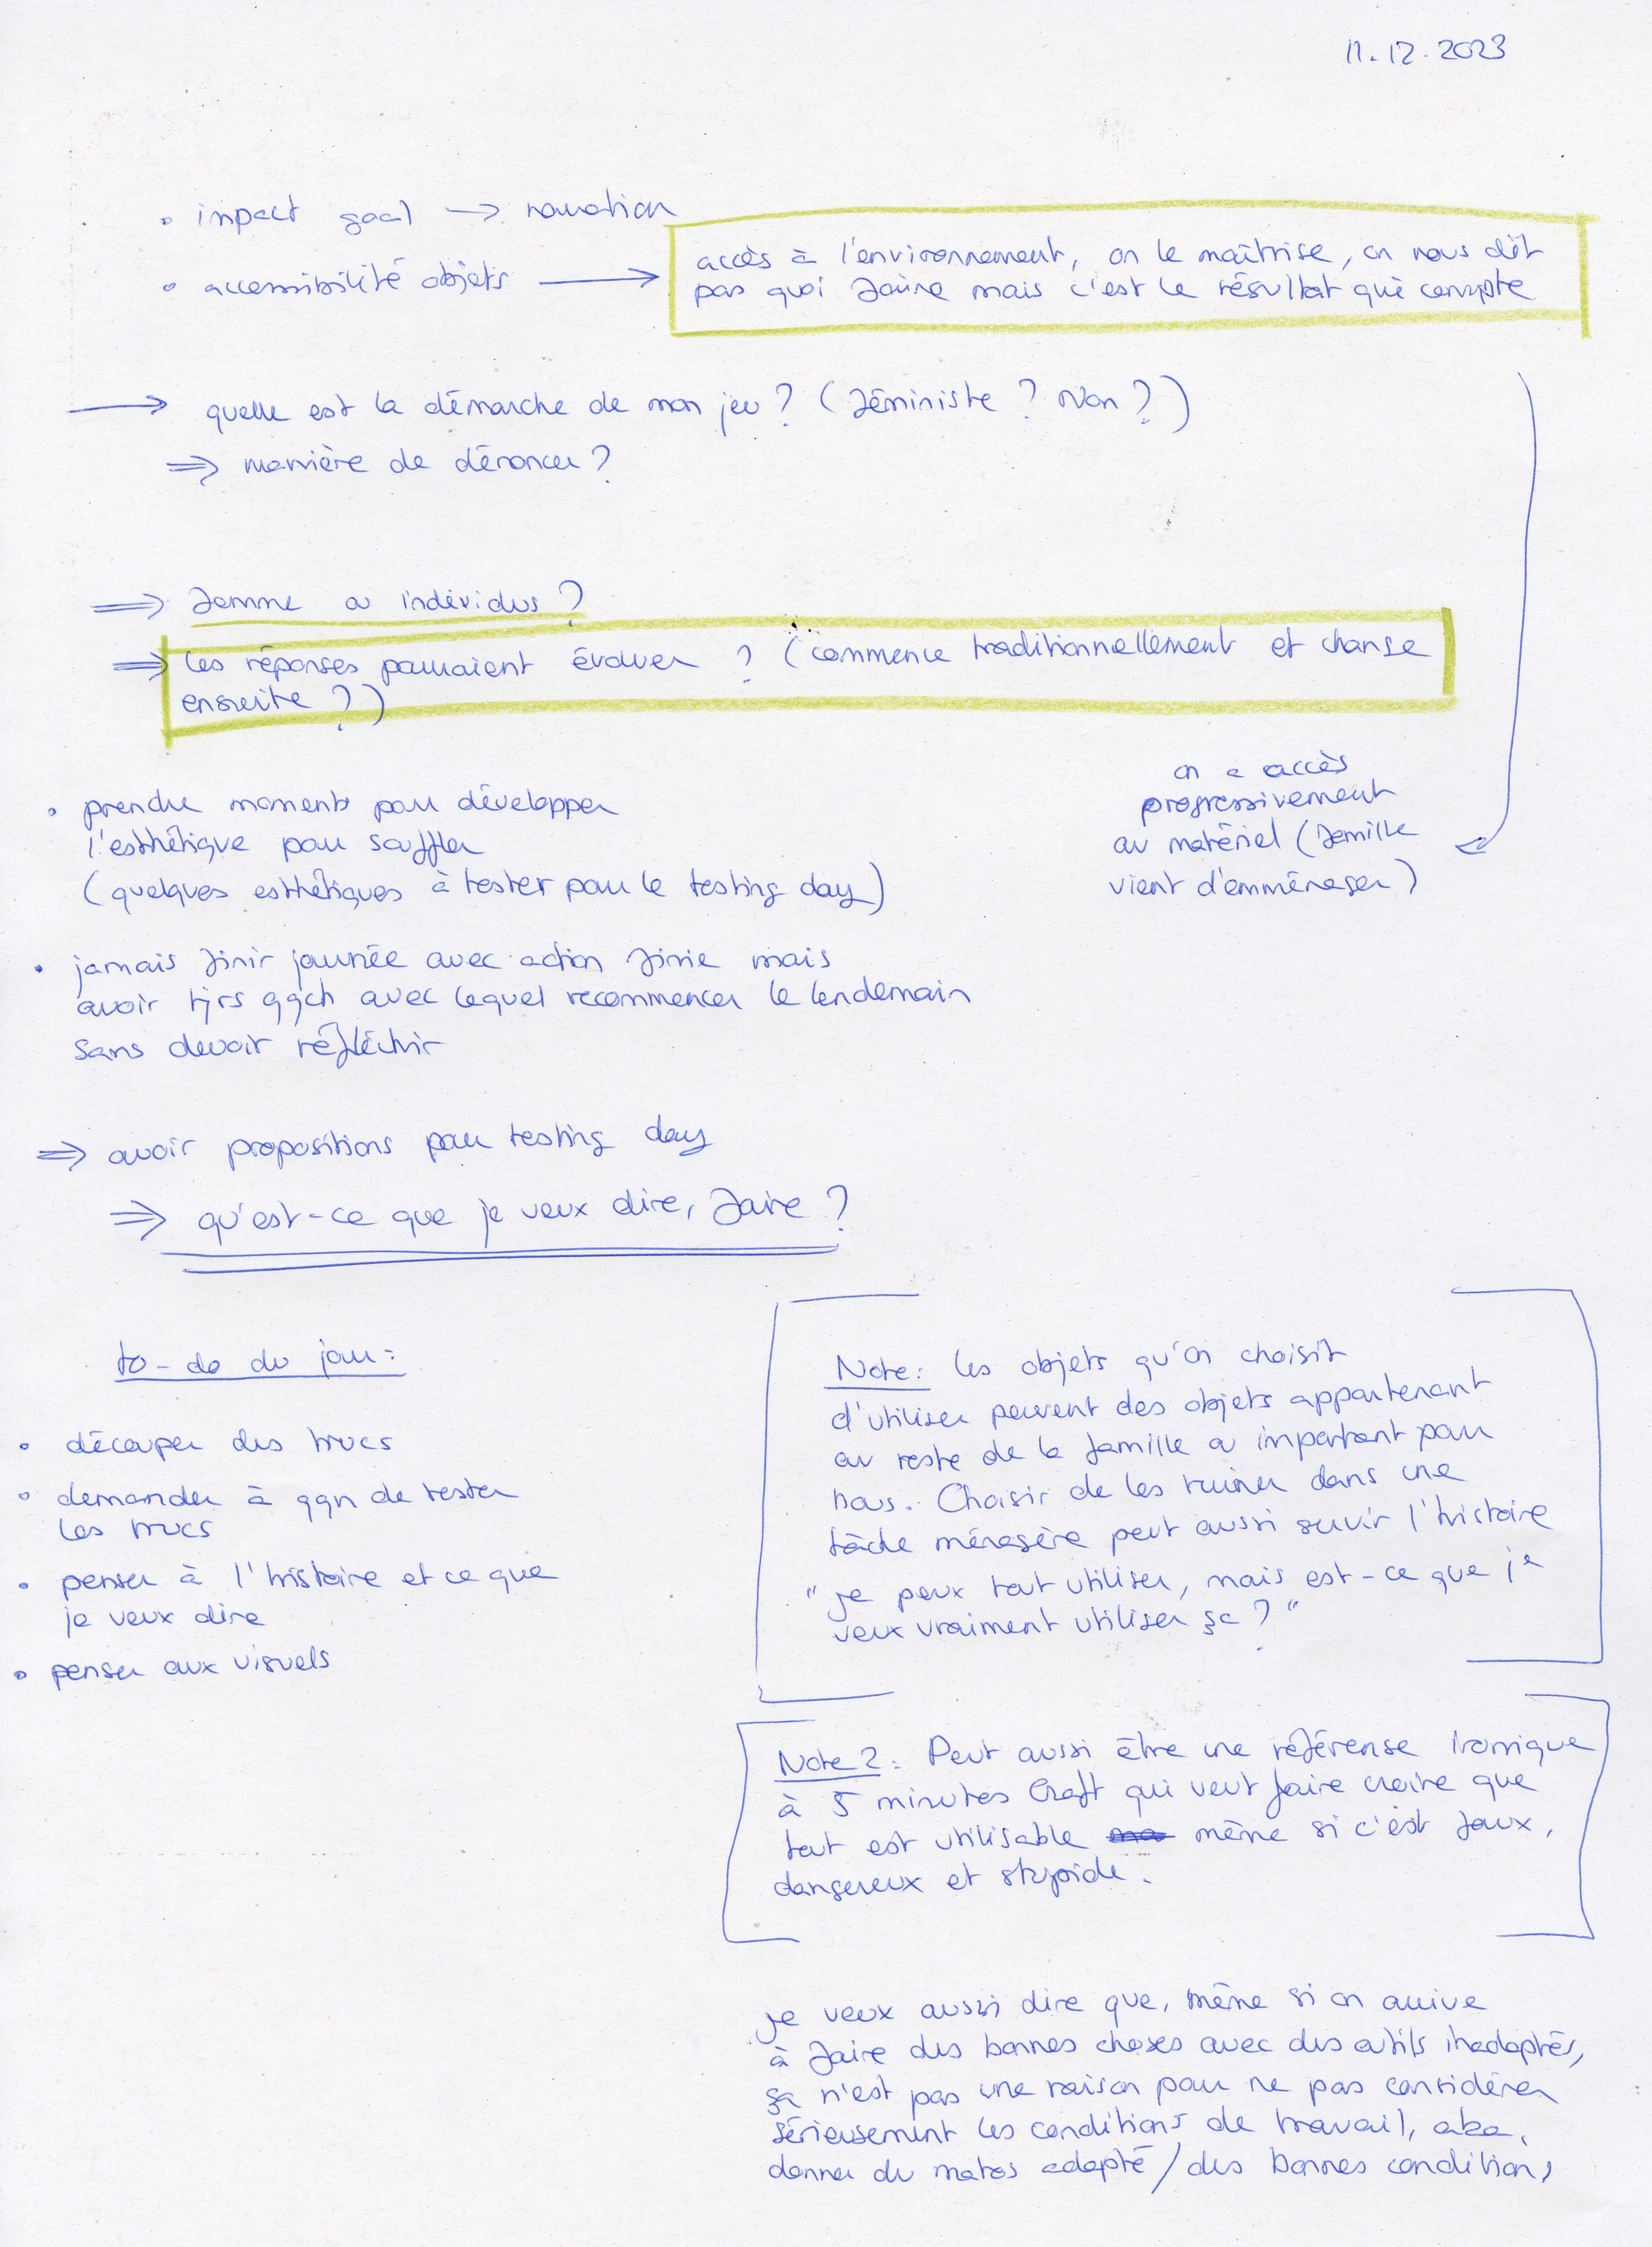 11.12.2023
• impact goal → narration
• accessibilité objets →
accès à l'environnement, on le maîtrise, on nous dit
pas quoi faire mais c'est le résultat qui compte
→ quelle est la démarche de mon jeu ? (féministe ? Non ?)
⇒ manière de dénoncer ?
⇒ femme ou individus ?
⇒ les réponses pourraient évoluer ? (commence traditionnellement et change
ensuite ?)
on a accès
progressivement
au matériel (famille
vient d'emménager)
• prendre moments pour développer
l'esthétique pour souffler
(quelques esthétiques à tester pour le testing day)
• jamais finir journée avec action finie mais
avoir tjrs qqch avec lequel recommencer le lendemain
sans devoir réfléchir
⇒ avoir propositions pour testing day
⇒ qu'est-ce que je veux dire, faire ?
to-do du jour :
• découper des trucs
• demander à qqn de tester
les trucs
• penser à l'histoire et ce que
je veux dire
• penser aux visuels
Note : les objets qu'on choisit
d'utiliser peuvent des objets appartenant
au reste de la famille ou important pour
nous. Choisir de les ruiner dans une
tâche ménagère peut aussi servir l'histoire
"je peux tout utiliser, mais est-ce que je
veux vraiment utiliser ça ?"
Note 2 : Peut aussi être une référense ironique
à 5 minutes Craft qui veut faire croire que
tout est utilisable même si c'est faux,
dangereux et stupide.
je veux aussi dire que, même si on arrive
à faire des bonnes choses avec des outils inadaptés,
ça n'est pas une raison pour ne pas considérer
sérieusement les conditions de travail, aka,
donner du matos adapté / des bonnes conditions